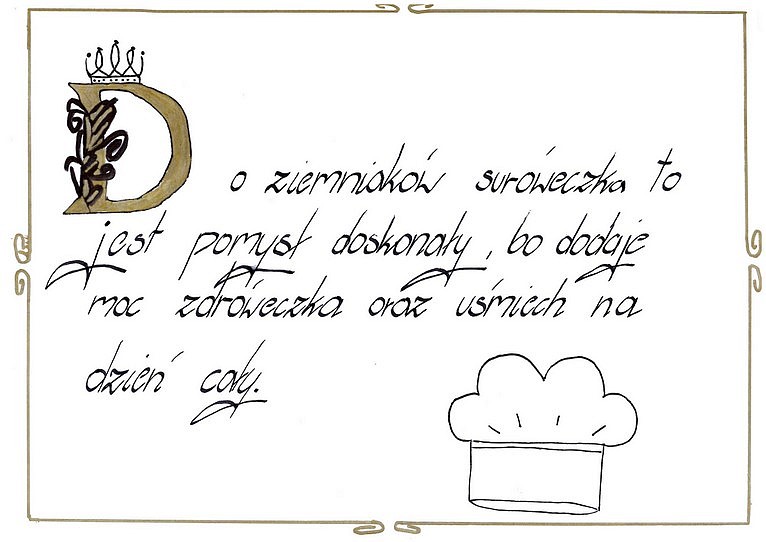 Do ziemniaków suróweczka to
jest pomysł doskonały, bo dodaje
moc zdróweczka oraz uśmiech na
dzień cały.